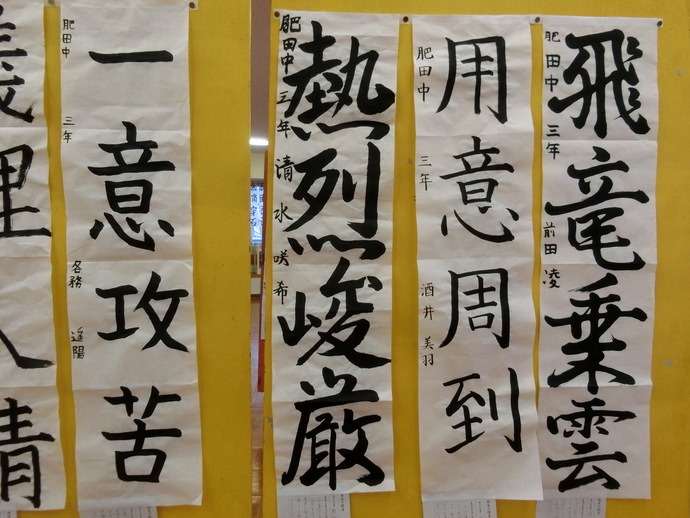 飛竜乗雲
肥田中 三年 前田 凌
用意周到
肥田中 三年 酒井 美羽
熱烈峻厳
肥田中 三年 清水 咲希
一意攻苦
肥田中 三年 各務 遥陽
義理人情